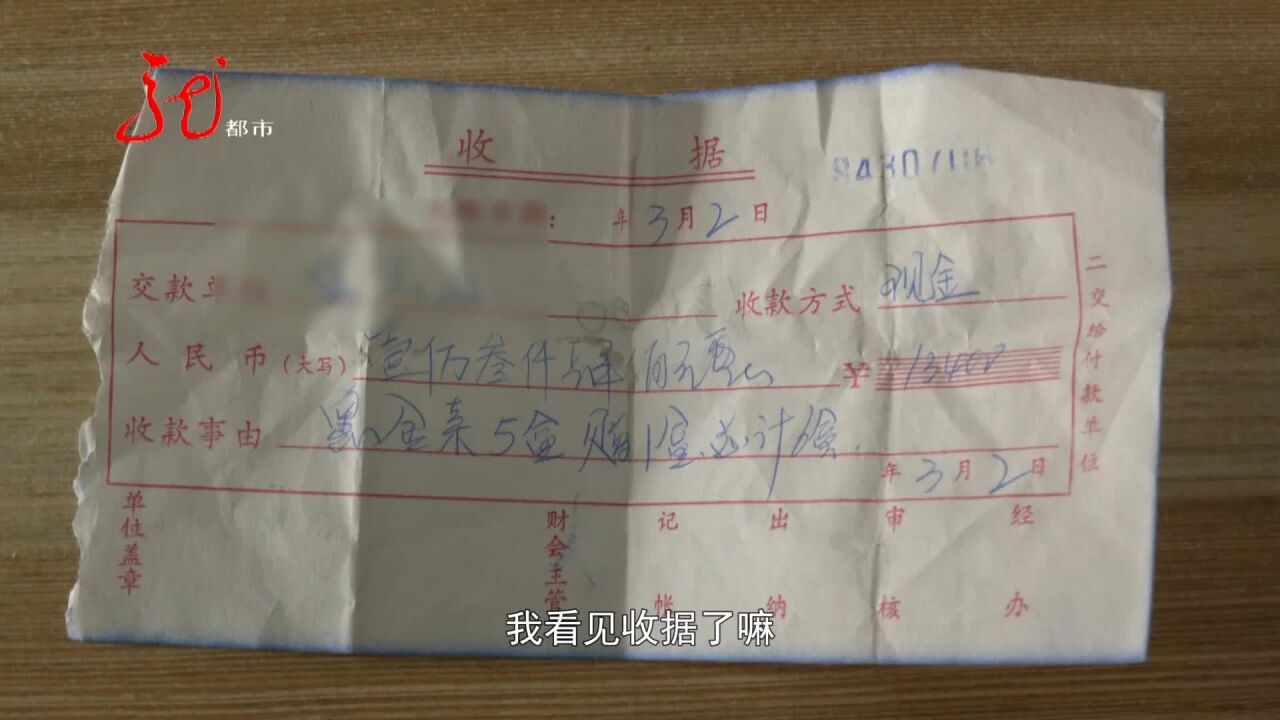 都市
收 据
年 3 月 2 日
交款
收款方式 现金
人民币(大写) 壹仟叁仟肆佰元整 ¥ 13400
收款事由 5盒 赠1盒 共计6盒.
年 3 月 2 日
二交给付款单位
单位盖章
财会主管
记帐
出纳
审核
经办
我看见收据了嘛